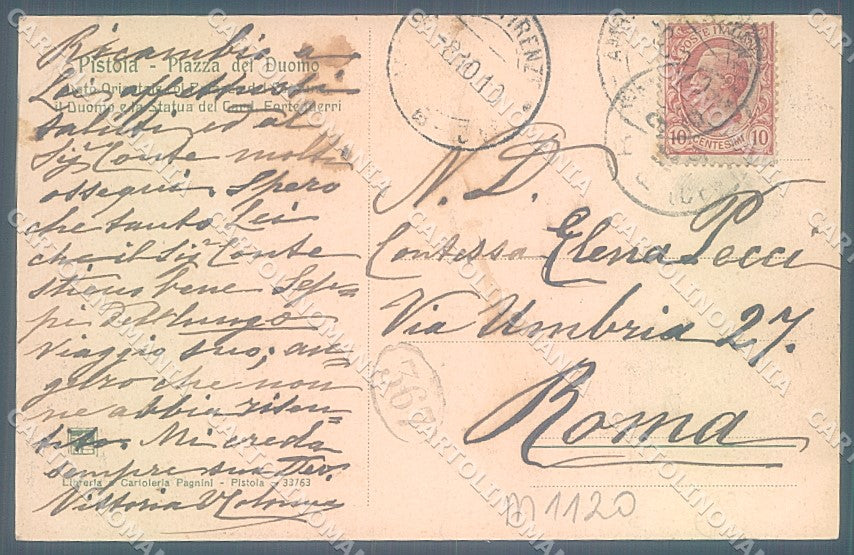 Pistoia - Piazza del Duomo
il Duomo e la Statua del Card. Forteguerri
Ricambio a
Lei
saluti ed al
Sigr Conte molti
ossequi. Spero
che tanto Lei
che il Sigr Conte
stiano bene. Sep-
pi del lungo
viaggio suo; au-
guro che non
ne abbia risen-
tito. Mi creda
sempre sua
Vittoria
Libreria e Cartoleria Pagnini - Pistoia - 33763
FIRENZE
8.10.10
POSTE ITALIANE
10 CENTESIMI 10
N. D.
Contessa Elena Pecci
Via Umbria 27.
Roma
367
M1120
CARTOLINOMANIA